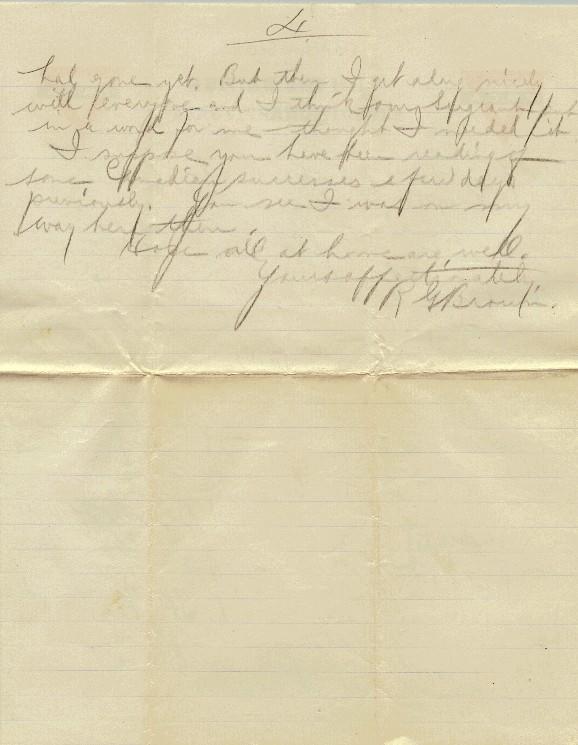 4.
had gone yet. But then I get along nicely
with everyone and I think my Sergeant put
in a word for me thought I needed it.
I suppose you have been reading of
some Canadian successes a few days
previously. You see I was on my
way here then.
Hope all at home are well.
Yours affectionately
R G Brown.